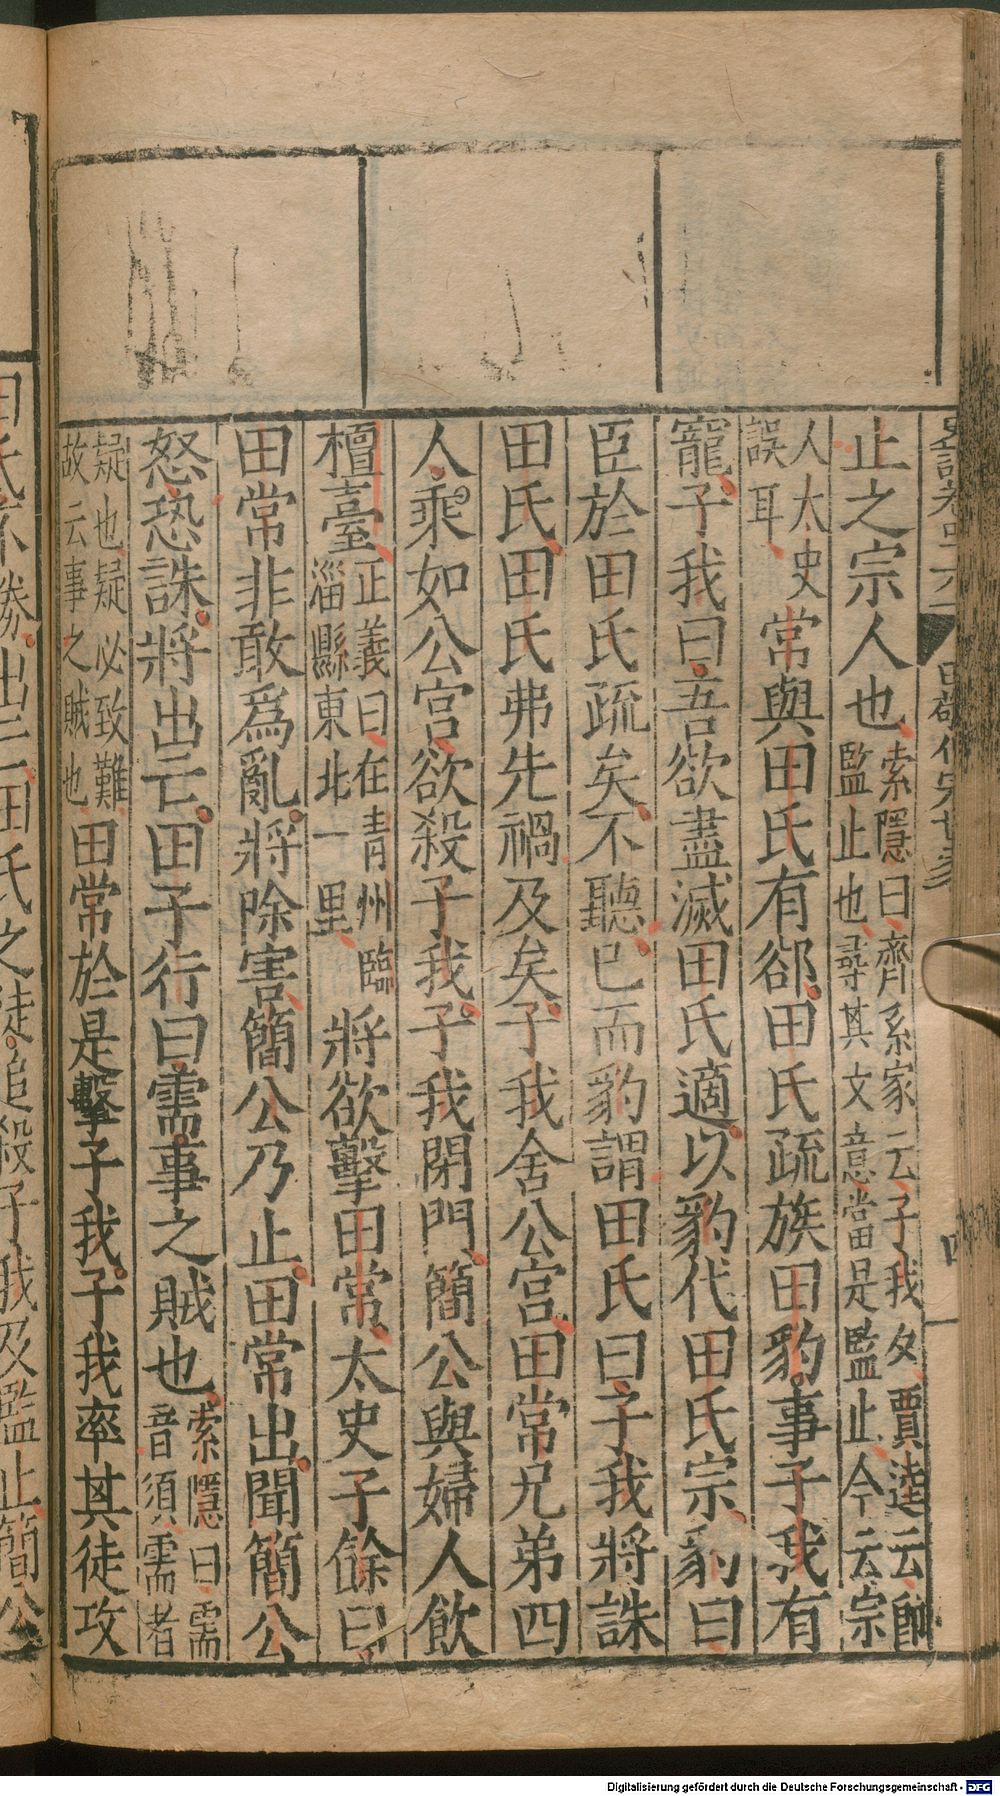 史記卷四十六 田敬仲完世家 四
止之宗人也索隱曰齊系家云子我夕賈逵云卽
監止也尋其文意當是監止今云宗
人太史
誤耳常與田氏有郤田氏疏族田豹事子我有
寵子我曰吾欲盡滅田氏適以豹代田氏宗豹曰
臣於田氏疏矣不聽已而豹謂田氏曰子我將誅
田氏田氏弗先禍及矣子我舍公宮田常兄弟四
人乘如公宮欲殺子我子我閉門簡公與婦人飲
檀臺正義曰在青州臨
淄縣東北一里將欲擊田常太史子餘曰
田常非敢爲亂將除害簡公乃止田常出聞簡公
怒恐誅將出亡田子行曰需事之賊也索隱曰需
音須需者
疑也疑必致難
故云事之賊也田常於是擊子我子我率其徒攻
田氏不勝出亡田氏之徒追殺子我及監止簡公
Digitalisierung gefördert durch die Deutsche Forschungsgemeinschaft - DFG